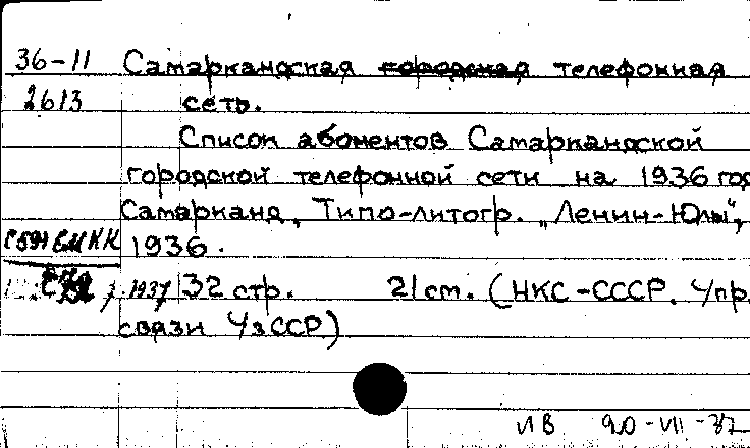 36-11 Самаркандская городская телефонная
2613 сеть.
Список абонентов Самаркандской
городской телефонной сети на 1936 год
Самарканд, Типо-литогр. „Ленин-Юлы",
1936.
1937 32 стр. 21 cm. (НКС-СССР. Упр.
связи УзССР)
ИВ 20-VII-37